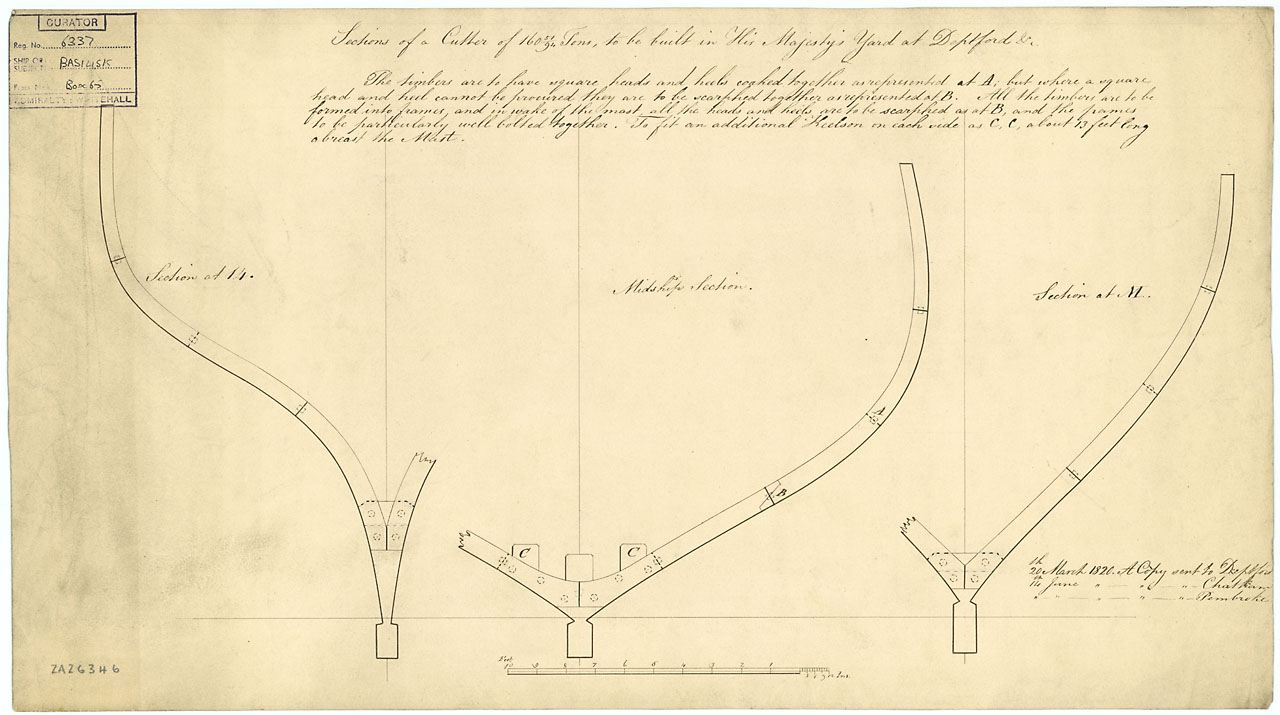 CURATOR
Reg. No. 6337
SHIP OR SUBJECT BASILISK
Box 65
ADMIRALTY WHITEHALL
Sections of a Cutter of 160 Tons, to be built in His Majesty's Yard at Deptford &c.
The timbers are to have square heads and heels coghed together as represented at A; but where a square
head and heel cannot be procured they are to be scarphed together as represented at B. All the timbers are to be
formed into frames, and in wake of the mast all the heads and heels are to be scarphed as at B, and the frames
to be particularly well bolted together. To fit an additional Keelson on each side as C, C, about 13 feet long
abreast the Mast.
Section at 14.
Midship Section.
Section at M.
A
B
C
C
20th March 1820. A Copy sent to Deptford
14th June " — " — " — Chatham
" " — " — " — Pembroke
Feet
10 9 8 7 6 5 4 3 2 1
Ins.
ZAZ6346